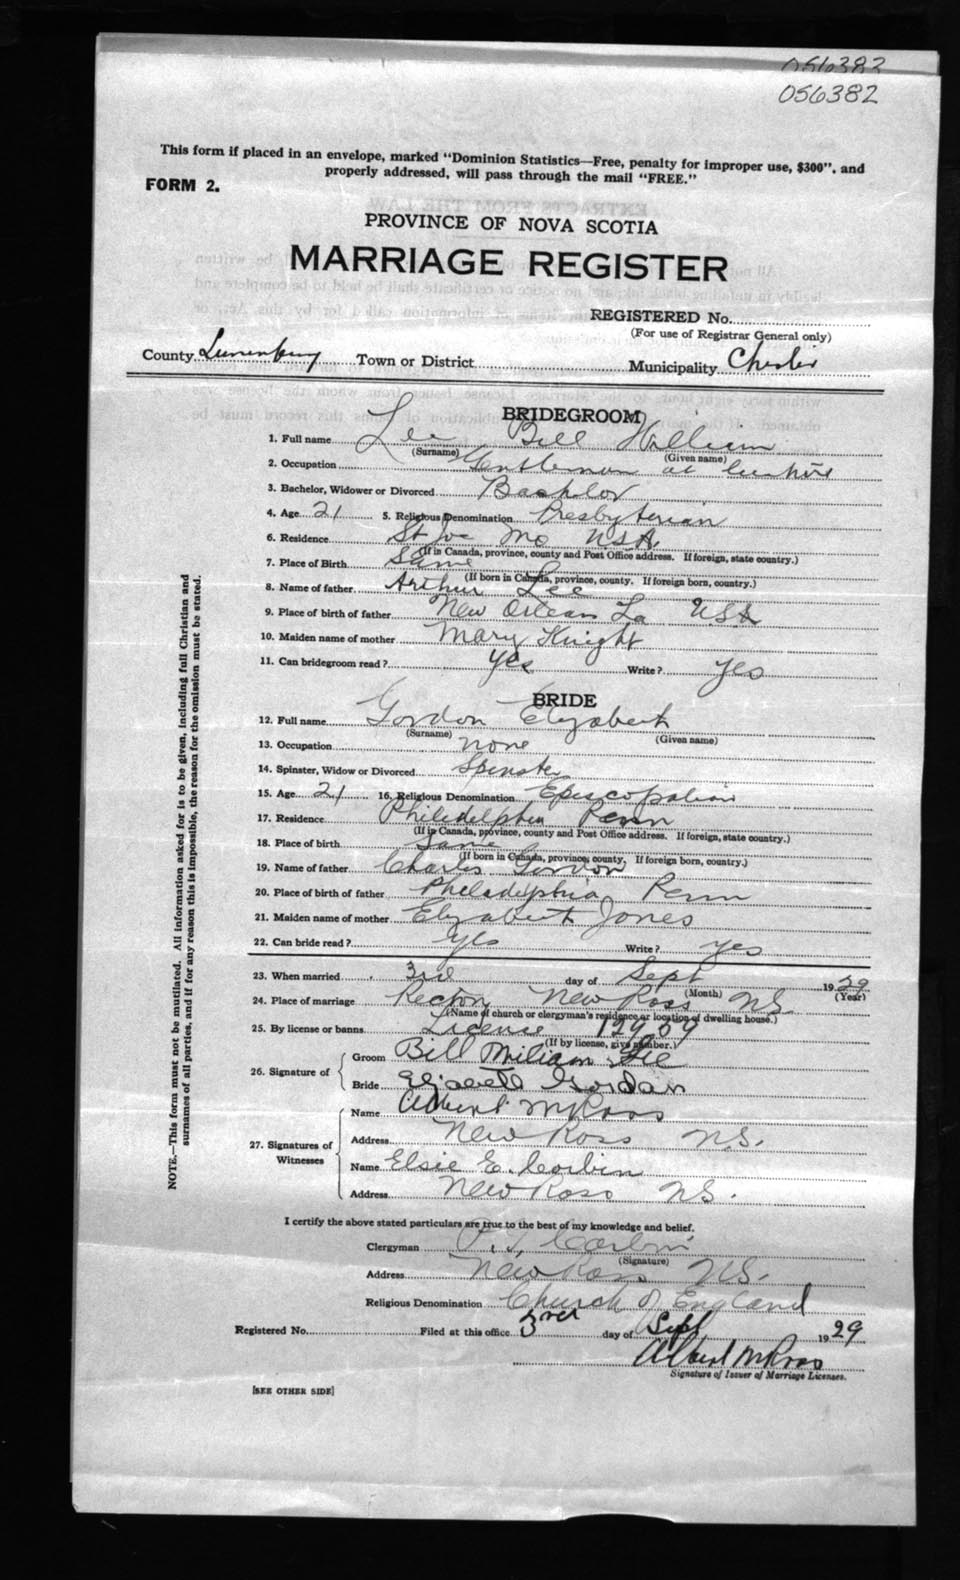 056382
056382
This form if placed in an envelope, marked "Dominion Statistics—Free, penalty for improper use, $300", and
properly addressed, will pass through the mail "FREE."
FORM 2.
PROVINCE OF NOVA SCOTIA
MARRIAGE REGISTER
REGISTERED No.
(For use of Registrar General only)
County Lunenburg Town or District Municipality Chester
BRIDEGROOM
1. Full name Lee Bill William
(Surname) (Given name)
2. Occupation Gentleman at leisure
3. Bachelor, Widower or Divorced Bachelor
4. Age 21 5. Religious Denomination Presbyterian
6. Residence St Joe Mo USA
(If in Canada, province, county and Post Office address. If foreign, state country.)
7. Place of Birth Same
(If born in Canada, province, county. If foreign born, country.)
8. Name of father Arthur Lee
9. Place of birth of father New Orlean La USA
10. Maiden name of mother Mary Knight
11. Can bridegroom read? yes Write? yes
BRIDE
12. Full name Gordon Elizabeth
(Surname) (Given name)
13. Occupation none
14. Spinster, Widow or Divorced Spinster
15. Age 21 16. Religious Denomination Episcopalian
17. Residence Philadelphia Penn
(If in Canada, province, county and Post Office address. If foreign, state country.)
18. Place of birth Same
(If born in Canada, province, county. If foreign born, country.)
19. Name of father Charles Gordon
20. Place of birth of father Philadelphia Penn
21. Maiden name of mother Elizabeth Jones
22. Can bride read? yes Write? yes
23. When married 3rd day of Sept 1929
(Month) (Year)
24. Place of marriage Rectory New Ross NS.
(Name of church or clergyman's residence or location of dwelling house.)
25. By license or banns License 12959
(If by license, give number.)
26. Signature of Groom Bill William Lee
Bride Elizabeth Gordon
27. Signatures of Witnesses
Name Albert M Ross
Address New Ross N.S.
Name Elsie E. Corbin
Address New Ross NS.
I certify the above stated particulars are true to the best of my knowledge and belief.
Clergyman Corbin
(Signature)
Address New Ross NS.
Religious Denomination Church of England
Registered No. Filed at this office 3rd day of Sept 1929
Albert M Ross
Signature of Issuer of Marriage Licenses.
[SEE OTHER SIDE]
NOTE.—This form must not be mutilated. All information asked for is to be given, including full Christian and
surnames of all parties, and if for any reason this is impossible, the reason for the omission must be stated.